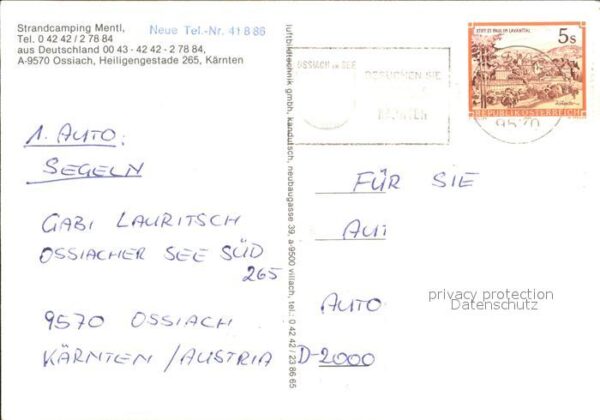 Strandcamping Mentl,
Tel. 0 42 42 / 2 78 84
aus Deutschland 00 43 - 42 42 - 2 78 84,
A-9570 Ossiach, Heiligengestade 265, Kärnten
Neue Tel.-Nr. 41 8 86
luftbildtechnik gmbh, kandutsch, neubaugasse 39, a-9500 villach, tel.: 0 42 42 / 23 86 65
OSSIACH AM SEE
BESUCHEN SIE
KÄRNTEN
STIFT ST. PAUL IM LAVANTTAL
5s
REPUBLIK ÖSTERREICH
9570
1. AUTO:
SEGELN
GABI LAURITSCH
OSSIACHER SEE SÜD
265
9570 OSSIACH
KÄRNTEN / AUSTRIA
FÜR SIE
AUT
AUTO
D-2000
privacy protection
Datenschutz